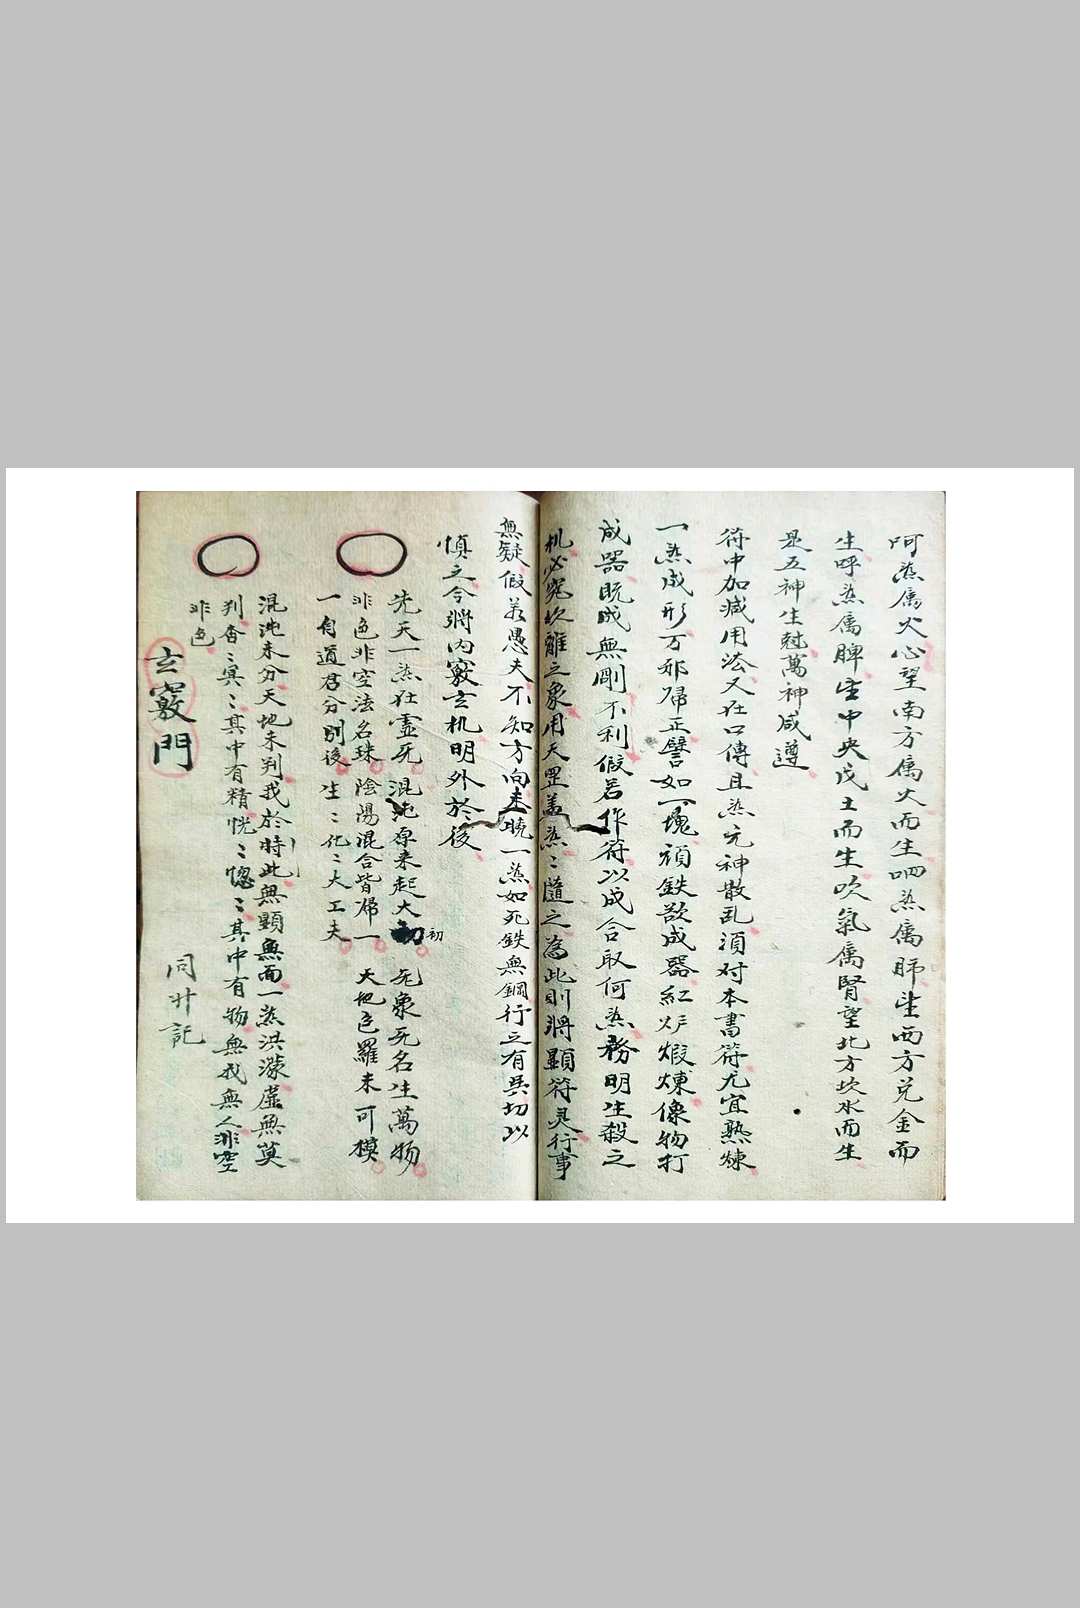 呵炁属火心望南方属火而生呬炁属肺望西方兑金而
生呼炁属脾望中央戊土而生吹氣属腎望北方坎水而生
是五神生尅萬神咸遵
符中加减用法又在口傳且炁元神散乱須对本書符尤宜熟煉
一炁成形万邪歸正譬如一塊頑鉄欲成器紅炉煅煉像物打
成器既成無剛不利假若作符以成合取何炁務明生殺之
机必究坎離之象用天罡盖炁〻隨之為此則將顯符灵行事
無疑假若愚夫不知方向未曉一炁如死鉄無鋼行之有吳切以
慎之今將内竅玄机明外於後
先天一炁在霊死 混沌原来起大初 无象死名生萬物
非色非空法名珠 陰陽混合皆歸一 天地包羅未可模
一自道君分別後 生〻化〻大工夫
混沌未分天地未判我於時此無顯無面一炁洪濛虚無莫
判杳〻冥〻其中有精恍〻惚〻其中有物無我無人非空
非色
玄竅門
同廾記